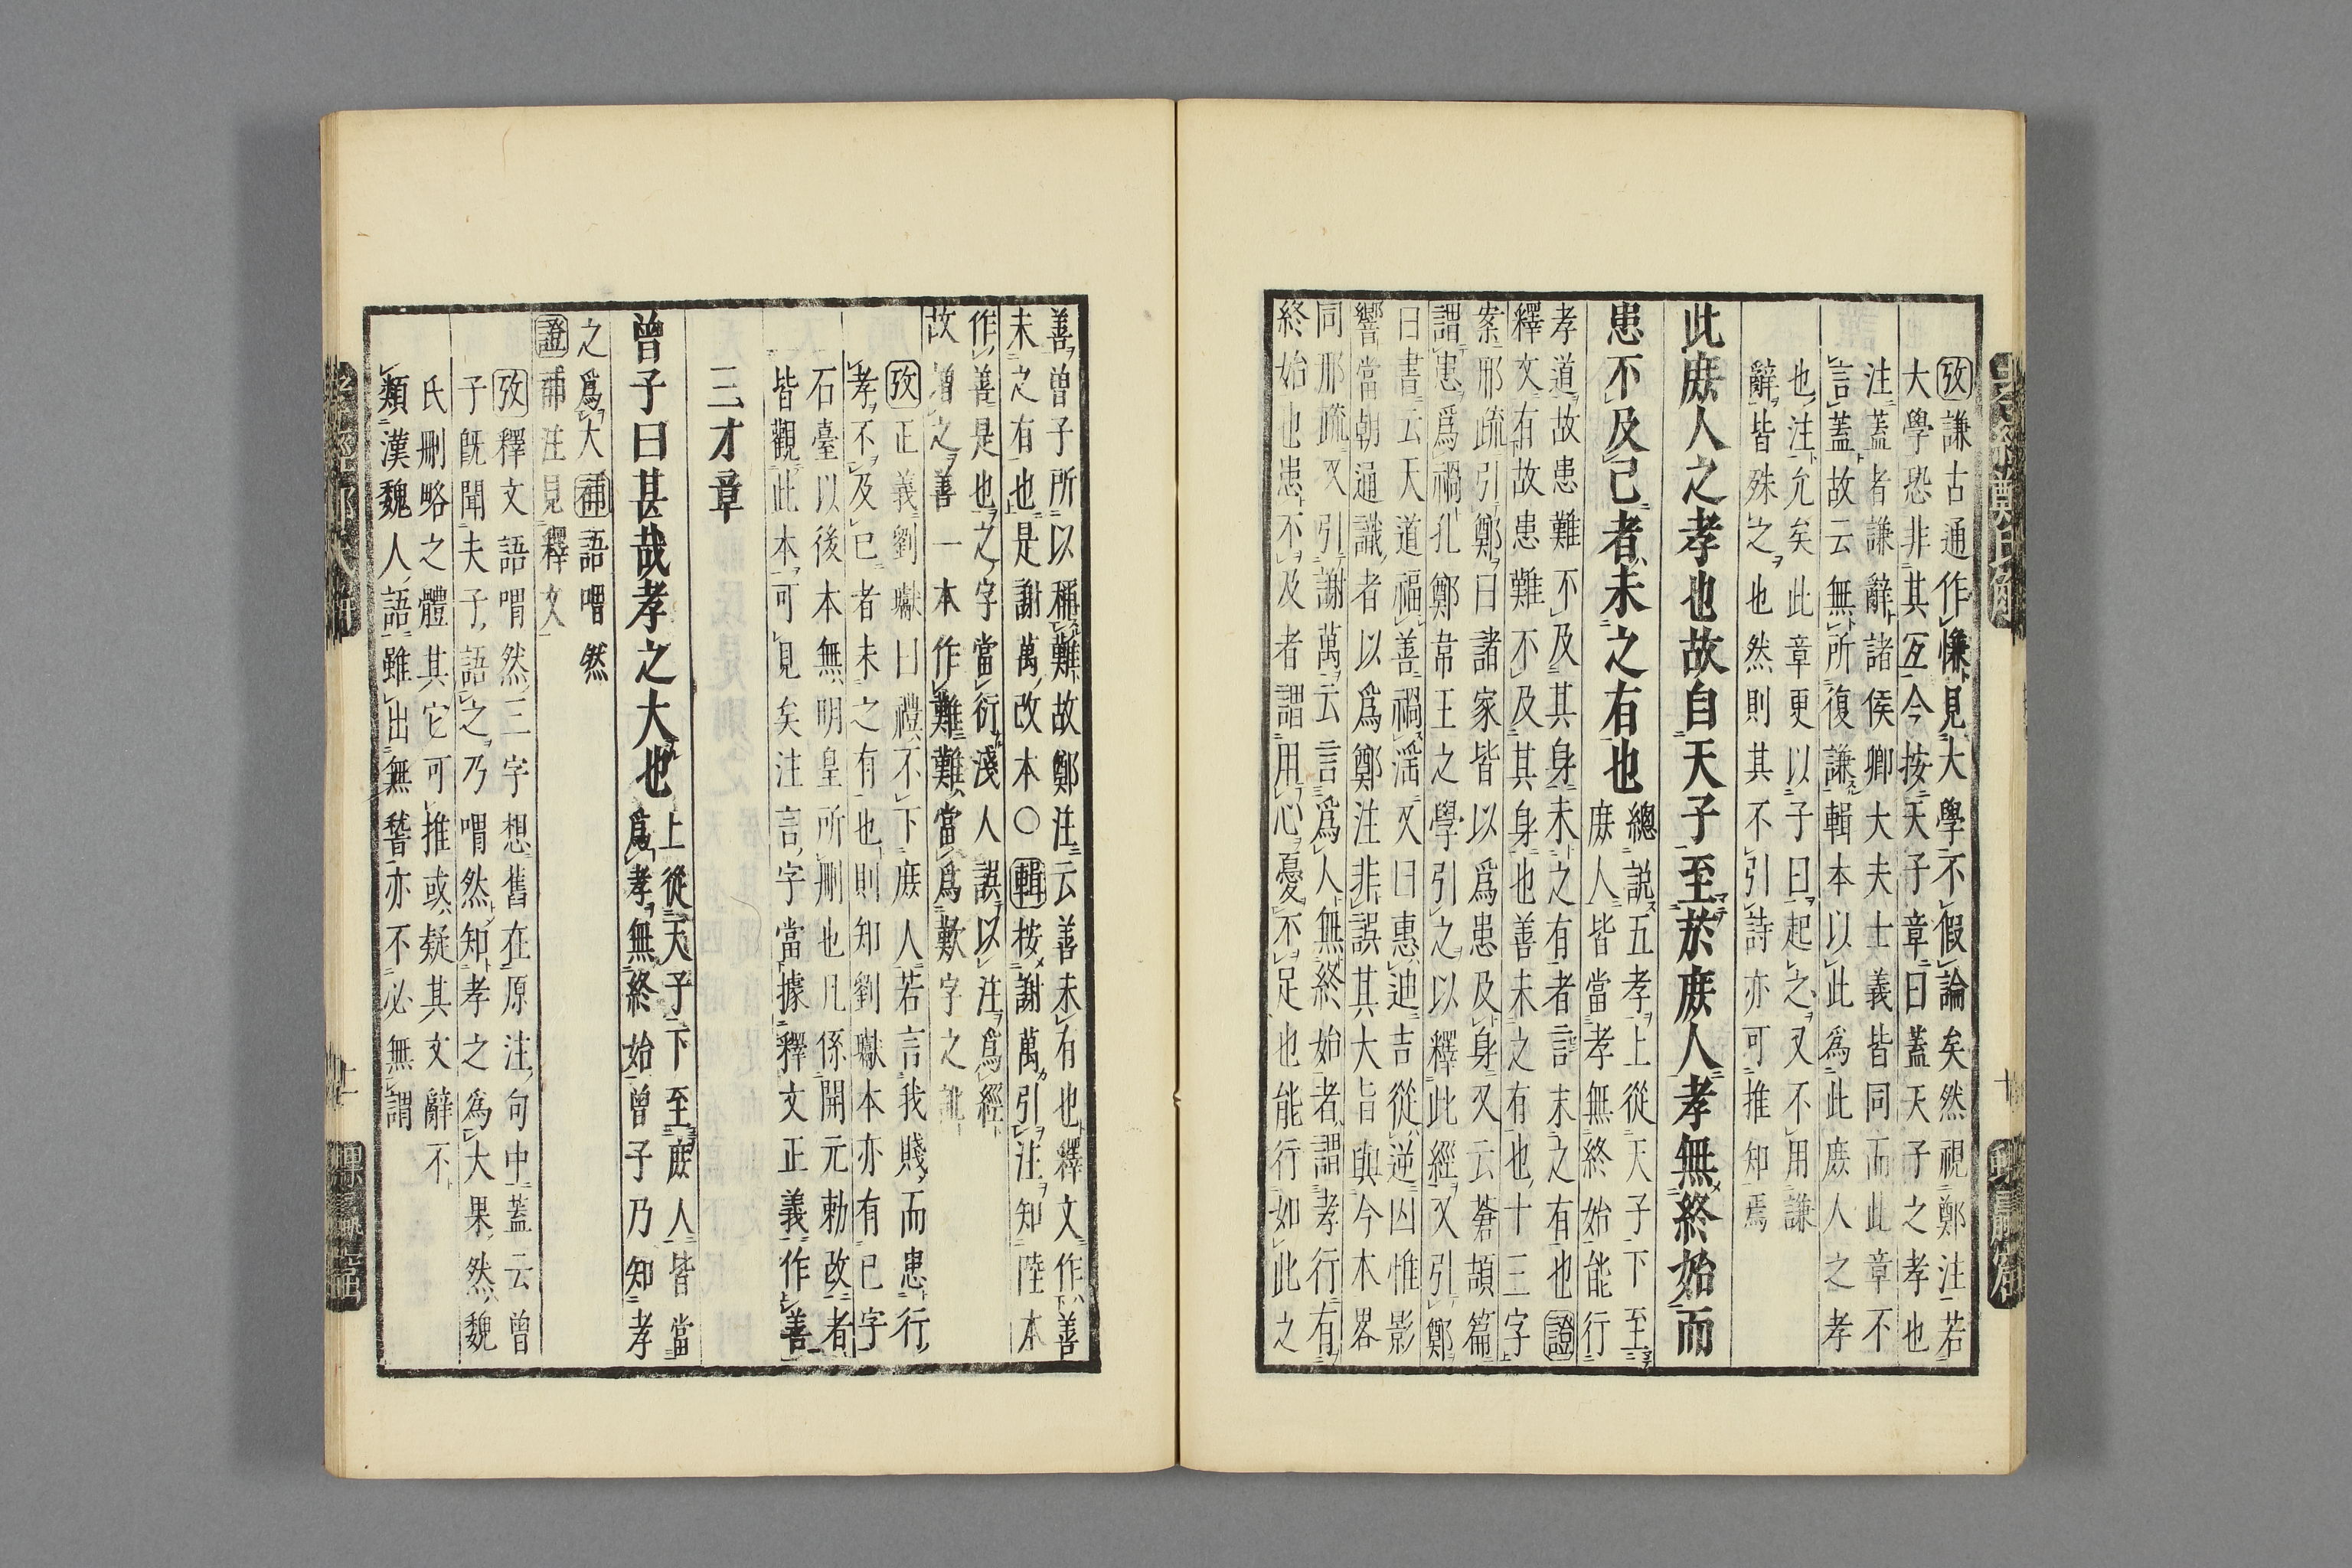 攷謙古通作慊見大學不假論矣然視鄭注若
大學恐非其互今按天子章曰蓋天子之孝也
注蓋者謙辭諸侯卿大夫士義皆同而此章不
言蓋故云無所復謙輯本以此為此庶人之孝
也注允矣此章更以子曰起之又不用謙
辭皆殊之也然則其不引詩亦可推知焉
此庶人之孝也故自天子至於庶人孝無終始而
患不及己者未之有也
總說五孝上從天子下至
庶人皆當孝無終始能行
孝道故患難不及其身未之有者言未之有也證
釋文有故患難不及其身也善未之有也十三字
案邢疏引鄭曰諸家皆以爲患及身又云蒼頡篇
謂患爲禍孔鄭韋王之學引之以釋此經又引鄭
曰書云天道福善禍滛又曰惠迪吉從逆凶惟影
響當朝通識者以爲鄭注非誤其大旨與今本畧
同邢疏又引謝萬云言爲人無終始者謂孝行有
終始也患不及者謂用心憂不足也能行如此之
善曾子所以稱難故鄭注云善未有也釋文作善
未之有也是謝萬改本○輯按謝萬引注知陸本
作善是也之字當衍淺人誤以注爲經
故增之善一本作難難當爲歎字之訛
攷正義劉瓛曰禮不下庶人若言我賤而患行
孝不及己者未之有也則知劉瓛本亦有己字
石臺以後本無明皇所刪也凡係開元勅改者
皆觀此本可見矣注言字當據釋文正義作善
三才章
曾子曰甚哉孝之大也
上從天子下至庶人皆當
爲孝無終始曾子乃知孝
之爲大補語喟然
證補注見釋文
攷釋文語喟然三字想舊在原注句中蓋云曾
子旣聞夫子語之乃喟然知孝之爲大果然魏
氏刪略之體其它可推或疑其文辭不
類漢魏人語雖出無嵇亦不必無謂